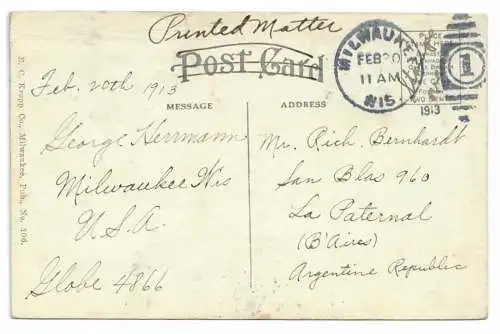 Printed Matter
Post Card
MILWAUKEE
FEB 20
11 AM
WIS.
1913
1
Feb. 20th 1913
MESSAGE
ADDRESS
George Herrmann
Milwaukee Wis
U.S.A.
Globe 4866
Mr. Rich. Bernhardt
San Blas 960
La Paternal
(B'Aires)
Argentine Republic
E. C. Kropp Co., Milwaukee, Pub., No. 106.